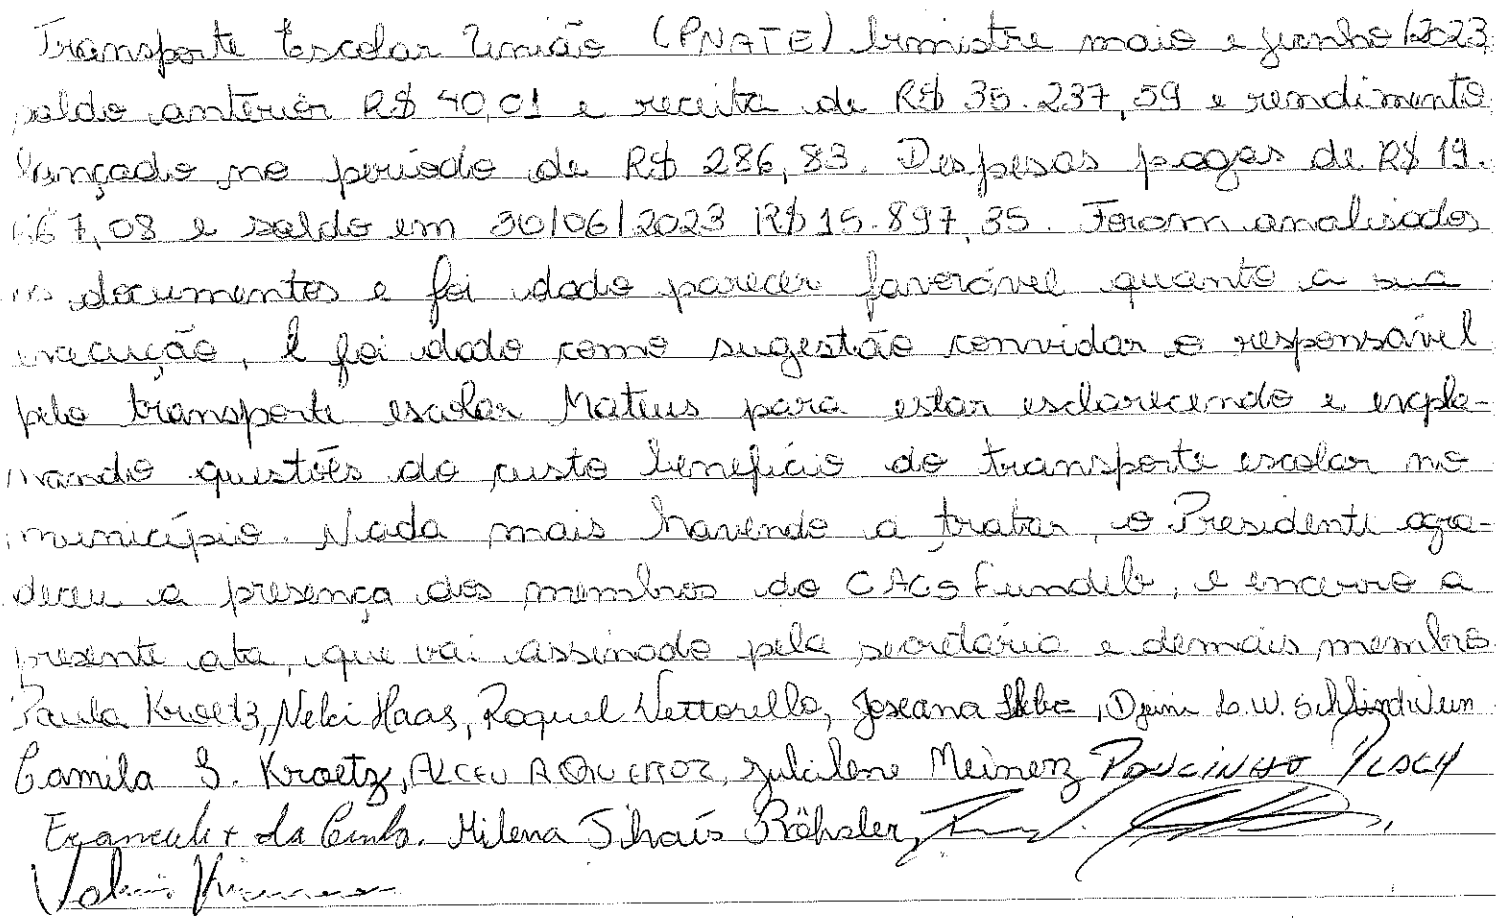 Transporte Escolar União (PNATE) bimestre maio e junho/2023
saldo anterior R$ 40,01 e receita de R$ 35.237,59 e rendimento
lançado no período de R$ 286,83. Despesas pagas de R$ 19.
667,08 e saldo em 30/06/2023 R$ 15.897,35. Foram analisados
os documentos e foi dado parecer favorável quanto a sua
execução, e foi dado como sugestão convidar o responsável
pelo transporte escolar Mateus para estar esclarecendo e expla-
nando questões do custo benefício do transporte escolar no
município. Nada mais havendo a tratar, o Presidente agra-
deceu a presença dos membros do CACS Fundeb, e encerro a
presente ata, que vai assinado pela secretária e demais membros.
Paula Kroetz, Neki Haas, Raquel Vettorello, Joseana, Djeini L. W. Schlindwein
Camila S. Kroetz, ALCEU A QUEIROZ, Julcilene Meinerz PAULINHO
da Milena Thaís Röhsler,